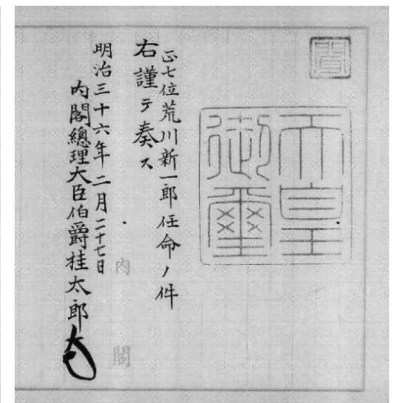 聞
天皇
御璽
正七位荒川新一郎任命ノ件
右謹テ奏ス
明治三十六年二月二十七日
内閣總理大臣伯爵桂太郎
内閣